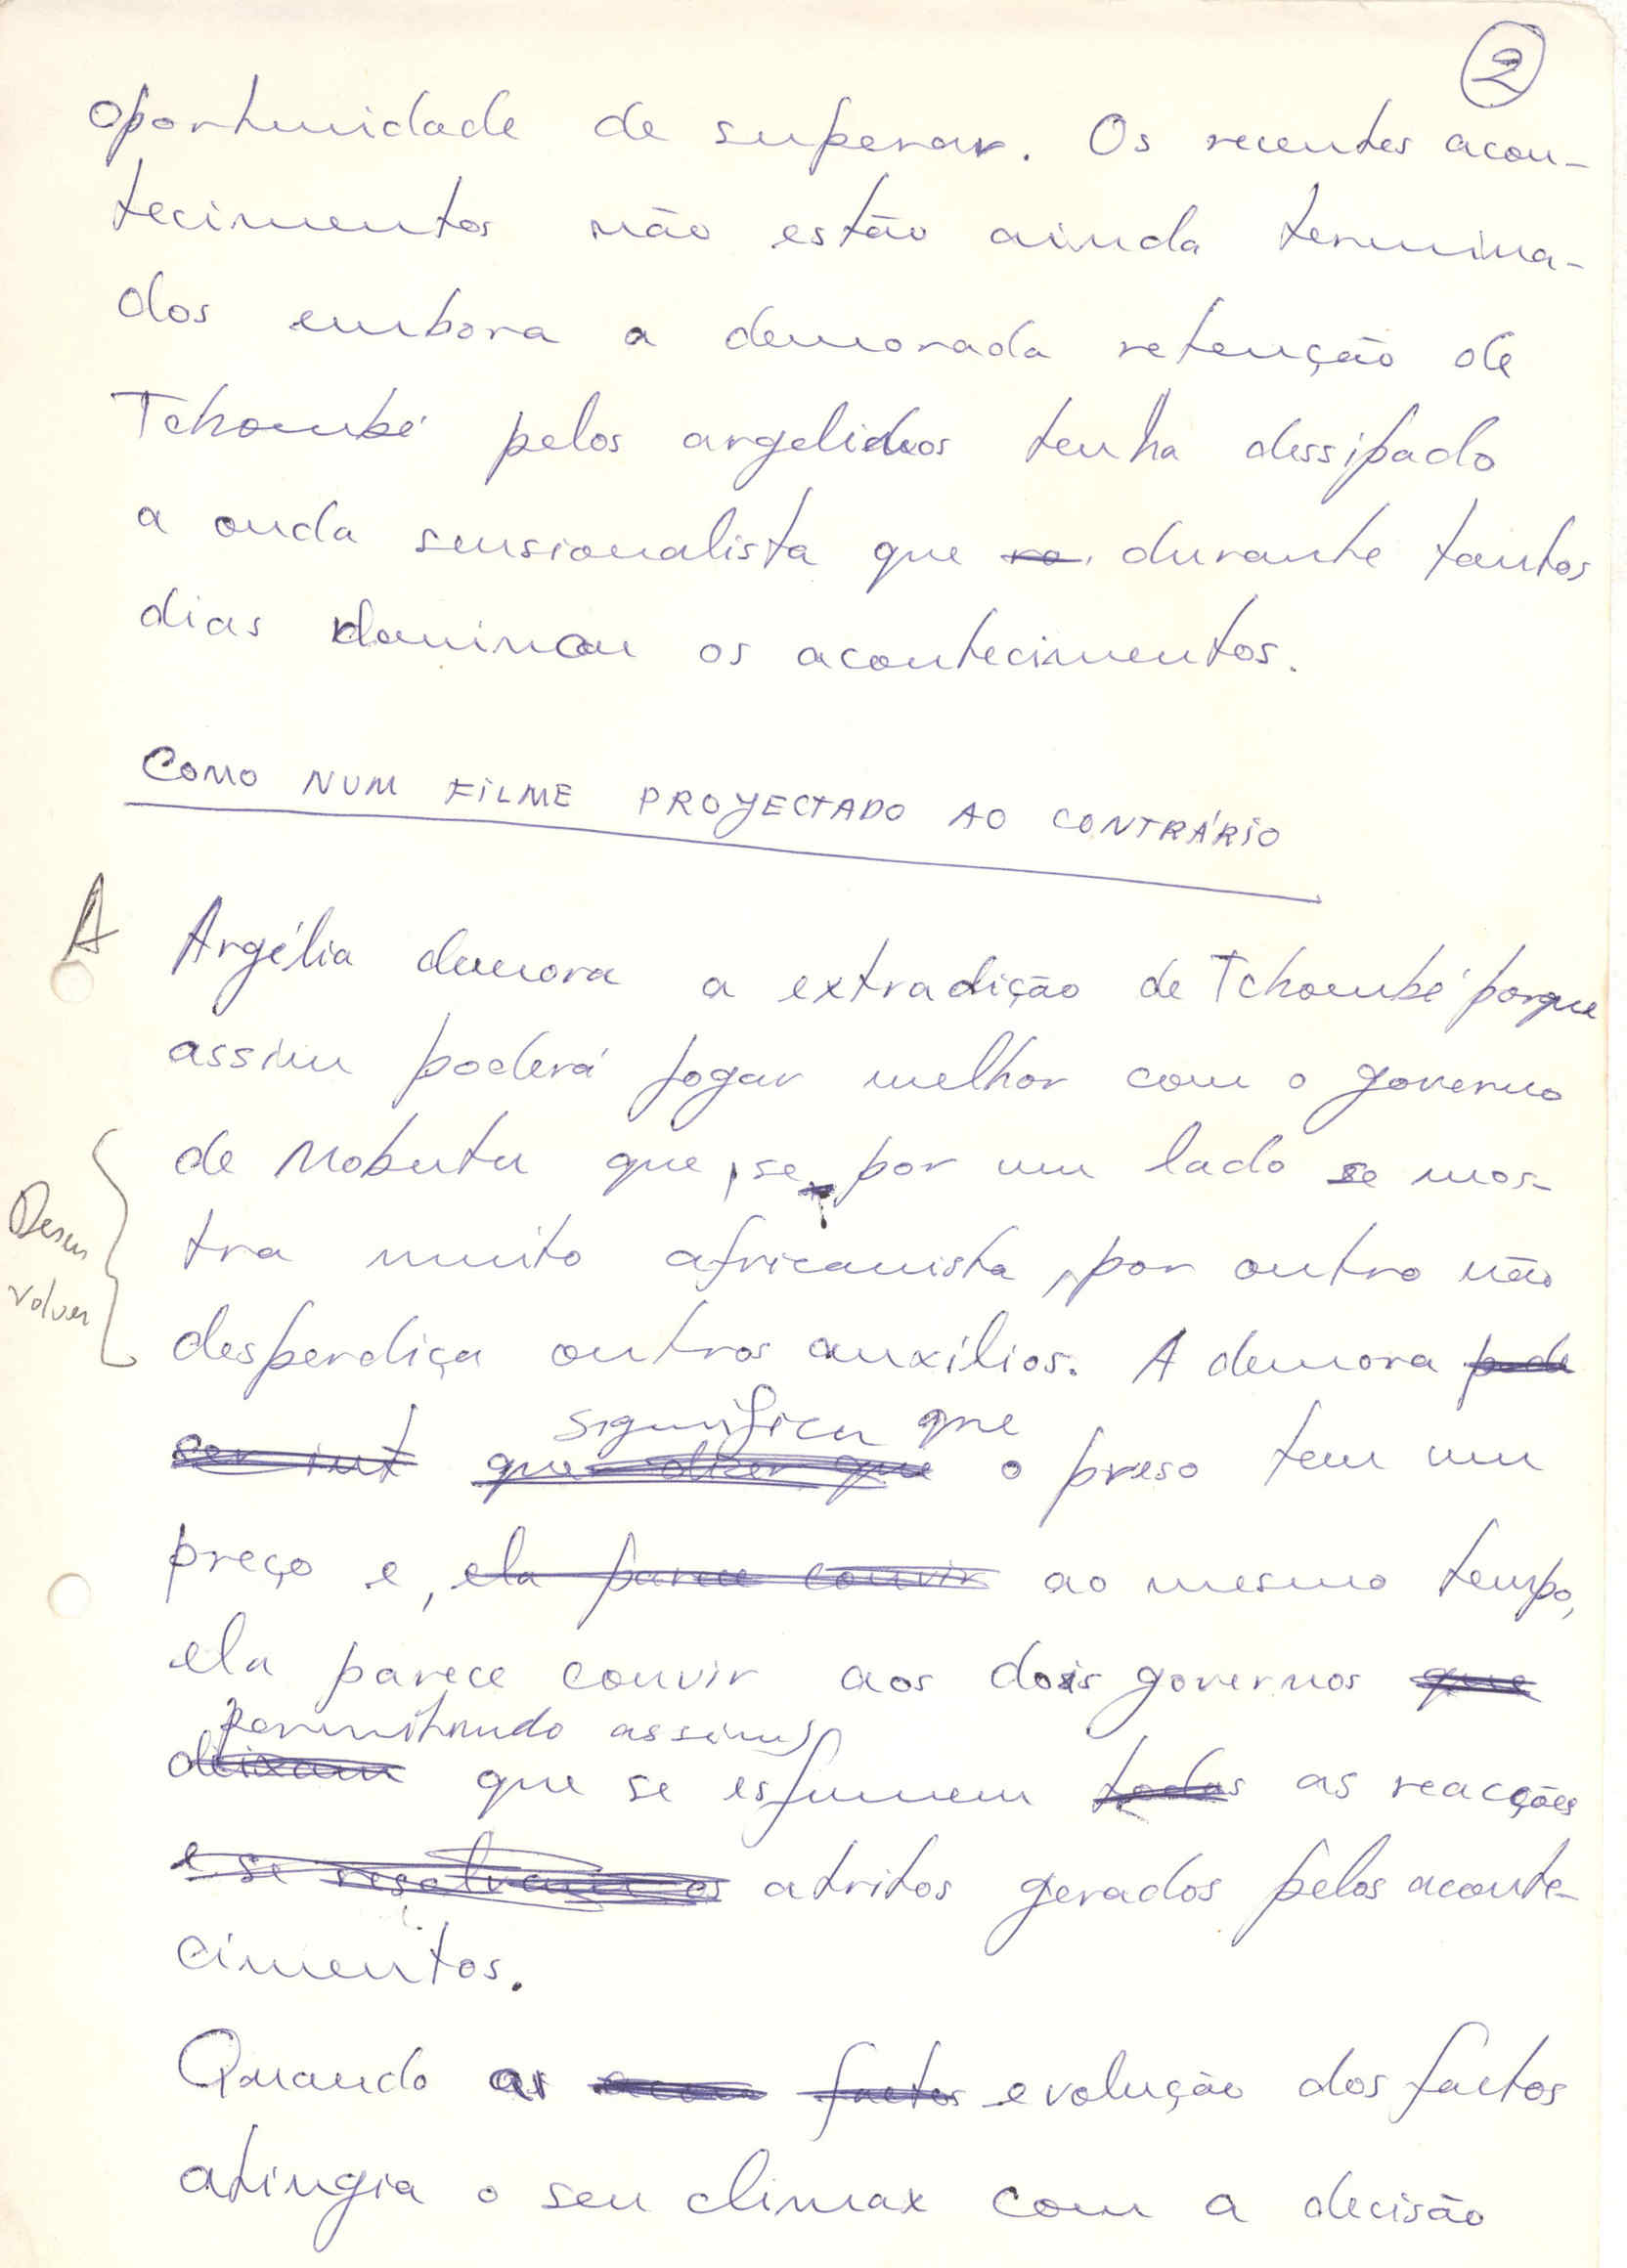 2
oportunidade de superar. Os recentes acon-
tecimentos não estão ainda termina-
dos embora a demorada retenção de
Tchombé pelos argelinos tenha dissipado
a onda sensionalista que durante tantos
dias dominou os acontecimentos.
COMO NUM FILME PROYECTADO AO CONTRÁRIO
A Argélia demora a extradição de Tchombé porque
assim poderá jogar melhor com o governo
de Mobutu que, se, por um lado se mos-
tra muito africanista, por outro não
Desen
volver
desperdiça outros auxílios. A demora pode
significa que
ser int quer dizer que o preso tem um
preço e, ela parece convir ao mesmo tempo,
ela parece convir aos dois governos que
permitindo assim
deixam que se esfumem todas as reacções
e se resolvam os atritos gerados pelos aconte-
cimentos.
Quando as factos evolução dos factos
atingia o seu climax com a decisão